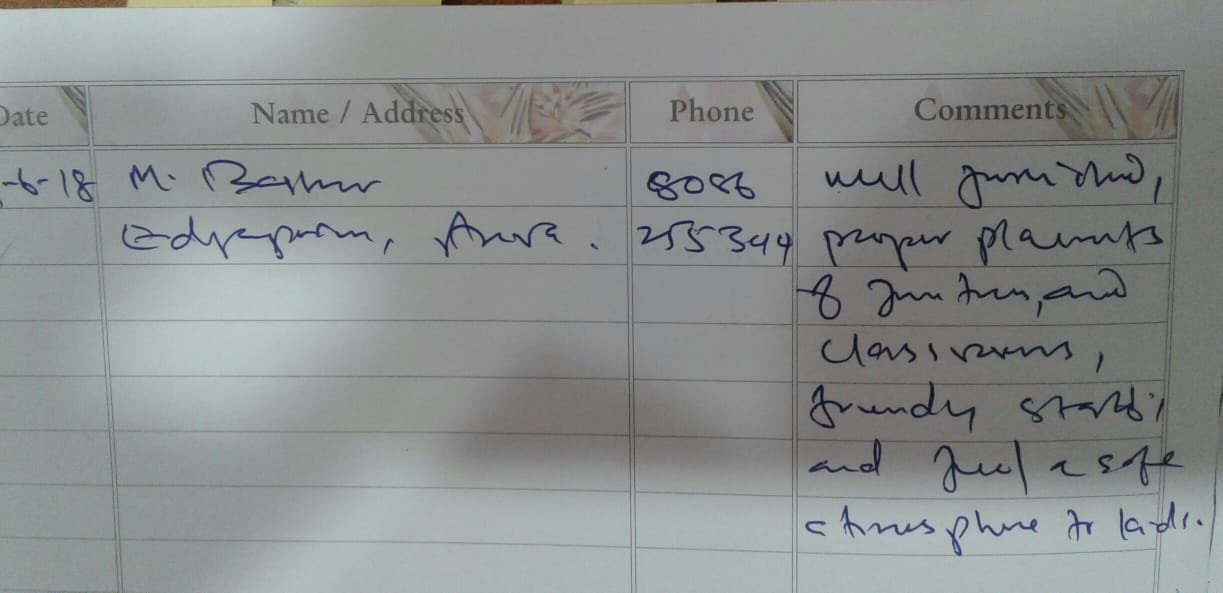 Date Name / Address Phone Comments
-6-18 M. Basheer 8086 well furnished,
Edyapuram, Aluva. 255344 proper placements
of furniture, and
classrooms,
friendly staff,
and feel a safe
atmosphere for kids.